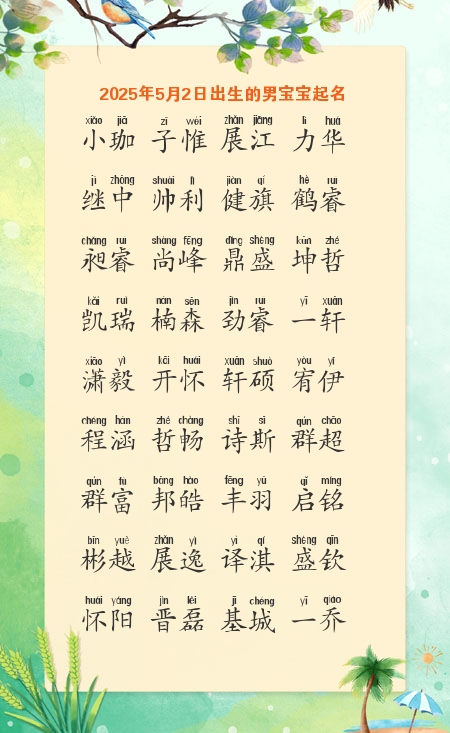 2025年5月2日出生的男宝宝起名
xiǎo jiā zǐ wéi zhǎn jiāng lì huá
小珈 子惟 展江 力华
jì zhōng shuài lì jiàn qí hè ruì
继中 帅利 健旗 鹤睿
chǎng ruì shàng fēng dǐng shèng kūn zhé
昶睿 尚峰 鼎盛 坤哲
kǎi ruì nán sēn jìn ruì yī xuān
凯瑞 楠森 劲睿 一轩
xiāo yì kāi huái xuān shuò yòu yī
潇毅 开怀 轩硕 宥伊
chéng hán zhé chàng shī sī qún chāo
程涵 哲畅 诗斯 群超
qún fù bāng hào fēng yǔ qǐ míng
群富 邦皓 丰羽 启铭
bīn yuè zhǎn yì yì qí shèng qīn
彬越 展逸 译淇 盛钦
huái yáng jìn lěi jī chéng yī qiáo
怀阳 晋磊 基城 一乔